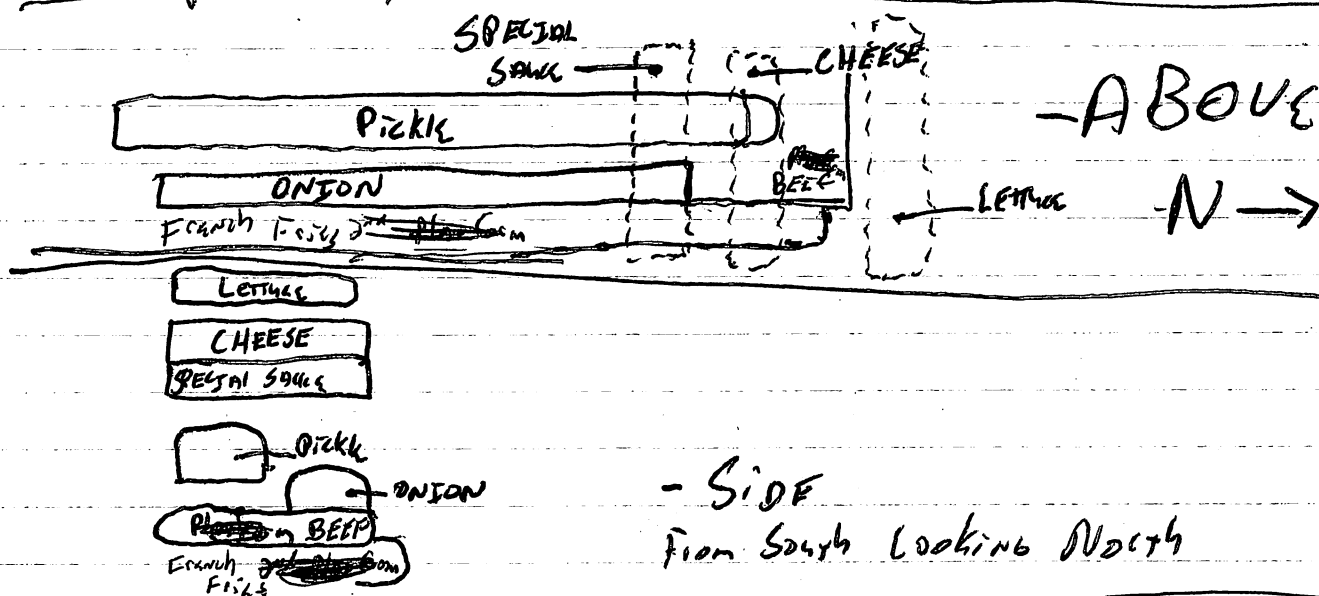 SPECIAL
SAUCE
CHEESE
Pickle
- ABOVE
BEEF
ONION
LETTUCE
N
French Fries 2nd
Lettuce
CHEESE
SPECIAL SAUCE
Pickle
ONION
BEEF
- SiDE
French
Fries
From South Looking North